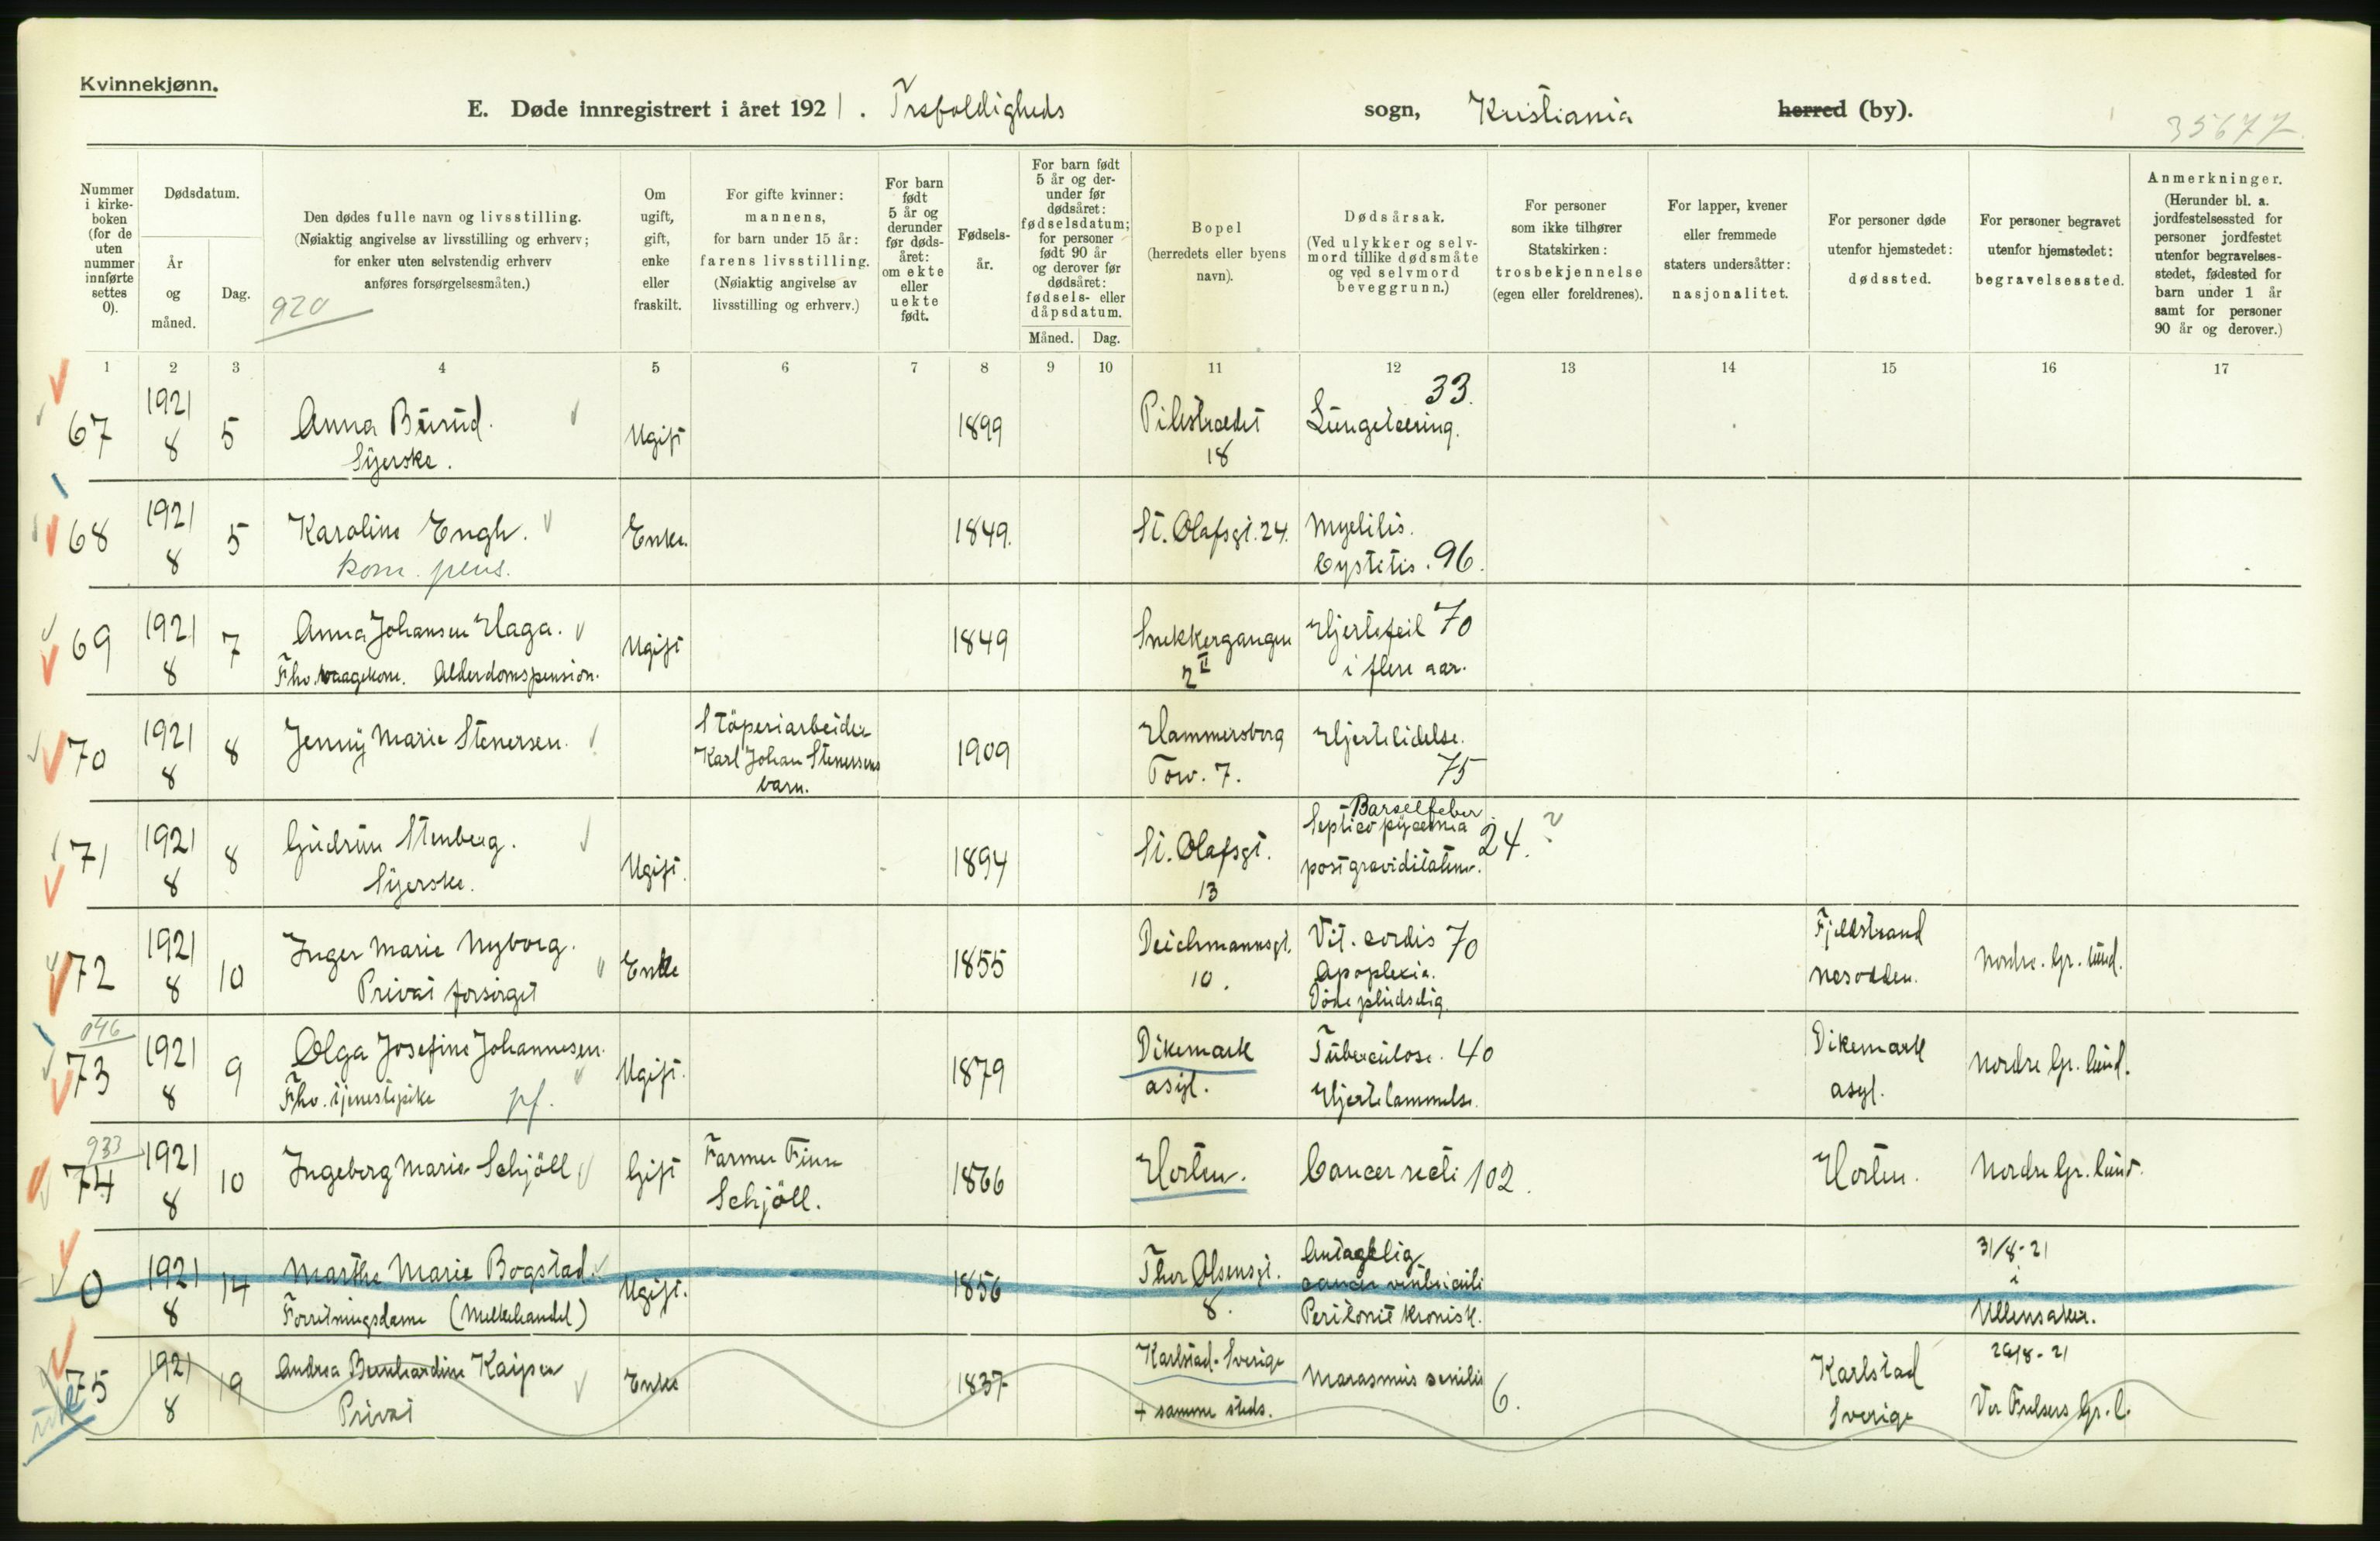 Kvinnekjønn.
E. Døde innregistrert i året 1921. Trefoldigheds sogn, Kristiania herred (by).
35677
Nummer i kirke-boken (for de uten nummer innførte settes 0).
Dødsdatum.
År og måned.
Dag.
Den dødes fulle navn og livsstilling.
(Nøiaktig angivelse av livsstilling og erhverv;
for enker uten selvstendig erhverv
anføres forsørgelsesmåten.)
920
Om ugift, gift, enke eller fraskilt.
For gifte kvinner:
mannens,
for barn under 15 år:
farens livsstilling.
(Nøiaktig angivelse av
livsstilling og erhverv.)
For barn født 5 år og derunder før døds-året: om ekte eller uekte født.
Fødsels-år.
For barn født 5 år og der-under før dødsåret: fødselsdatum; for personer født 90 år og derover før dødsåret: fødsels- eller dåpsdatum.
Måned. Dag.
Bopel
(herredets eller byens navn).
Dødsårsak.
(Ved ulykker og selv-mord tillike dødsmåte og ved selvmord beveggrunn.)
For personer
som ikke tilhører
Statskirken:
trosbekjennelse
(egen eller foreldrenes).
For lapper, kvener
eller fremmede
staters undersåtter:
nasjonalitet.
For personer døde
utenfor hjemstedet:
dødssted.
For personer begravet
utenfor hjemstedet:
begravelsessted.
Anmerkninger.
(Herunder bl. a. jordfestelsessted for personer jordfestet utenfor begravelses-stedet, fødested for barn under 1 år samt for personer 90 år og derover.)
1 2 3 4 5 6 7 8 9 10 11 12 13 14 15 16 17
67 1921 8 5 Anna Burud. Syerske. Ugift 1899 Pilestrædet 18 Lungetæring. 33.
68 1921 8 5 Karoline Engh. kom. pens. Enke. 1849. St. Olafsgt. 24. Myelitis. Cystitis. 96.
69 1921 8 7 Anna Johansen Haga. Fhv. vaagekone. Alderdomspension. Ugift 1849 Snekkergangen 2 II Hjertefeil 70 i flere aar.
70 1921 8 8 Jenny Marie Stenersen. Støperiarbeider Karl Johan Stenersens barn. 1909 Hammersborg Torv. 7. Hjertelidelse. 75
71 1921 8 8 Gudrun Stenberg. Syerske. Ugift. 1894 St. Olafsgt. 13 Barselfeber Septico pyæmia post graviditaten. 24. ?
72 1921 8 10 Inger Marie Nyborg. Privat forsørget Enke 1855 Deichmannsgt. 10. Vit. cordis 70 Apoplexia. Døde pludselig. Fjeldstrand Nesodden. Nordre. Gr. lund.
046
73 1921 8 9 Olga Josefine Johannesen. Fhv. tjenestepike pf. Ugift. 1879 Dikemark asyl. Tuberculose. 40 Hjertelammelse. Dikemark asyl. Nordre Gr. lund.
933
74 1921 8 10 Ingeborg Marie Schjöll Gift Farmer Finn Schjöll. 1866 Horten. Cancer recti 102. Horten. Nordre Gr. lund.
0 1921 8 14 Marthe Marie Bogstad. Forretningsdame (Melkehandel) Ugift. 1856 Thor Olsensgt. 8. Antagelig cancer ventriculi Peritonit kronisk. 31/8-21 i Ullensaker.
75 1921 8 19 Andrea Bernhardine Kaipsen Privat Enke 1837 Karlstad. Sverige + samme steds. Marasmus senilis 6. Karlstad Sverige 24/8-21 Vor Frelsers Gr. l.